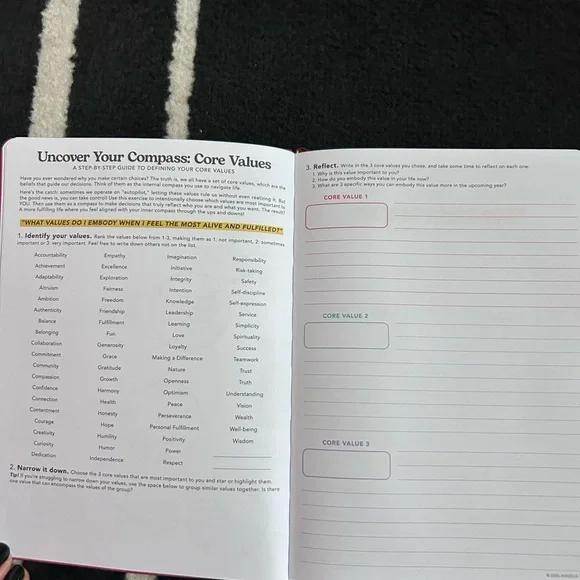 Uncover Your Compass: Core Values
A STEP-BY-STEP GUIDE TO DEFINING YOUR CORE VALUES
Have you ever wondered why you make certain choices? The truth is, we all have a set of core values, which are the
beliefs that guide our decisions. Think of them as the internal compass you use to navigate life.
Here's the catch: sometimes we operate on "autopilot," letting these values rule us without even realizing it. But
the good news is, you can take control! Use this exercise to intentionally choose which values are most important to
YOU. Then use them as a compass to make decisions that truly reflect who you are and what you want. The result?
A more fulfilling life where you feel aligned with your inner compass through the ups and downs!
"WHAT VALUES DO I EMBODY WHEN I FEEL THE MOST ALIVE AND FULFILLED?"
1. Identify your values. Rank the values below from 1-3, making them as 1: not important, 2: sometimes
important or 3: very important. Feel free to write down others not on the list.
Accountability
Achievement
Adaptability
Altruism
Ambition
Authenticity
Balance
Belonging
Collaboration
Commitment
Community
Compassion
Confidence
Connection
Contentment
Courage
Creativity
Curiosity
Dedication
Empathy
Excellence
Exploration
Fairness
Freedom
Friendship
Fulfillment
Fun
Generosity
Grace
Gratitude
Growth
Harmony
Health
Honesty
Hope
Humility
Humor
Independence
Imagination
Initiative
Integrity
Intention
Knowledge
Leadership
Learning
Love
Loyalty
Making a Difference
Nature
Openness
Optimism
Peace
Perseverance
Personal Fulfillment
Positivity
Power
Respect
Responsibility
Risk-taking
Safety
Self-discipline
Self-expression
Service
Simplicity
Spirituality
Success
Teamwork
Trust
Truth
Understanding
Vision
Wealth
Well-being
Wisdom
2. Narrow it down. Choose the 3 core values that are most important to you and star or highlight them.
Tip! If you're struggling to narrow down your values, use the space below to group similar values together. Is there
one value that can encompass the values of the group?
3. Reflect. Write in the 3 core values you chose, and take some time to reflect on each one:
1. Why is this value important to you?
2. How do you embody this value in your life now?
3. What are 3 specific ways you can embody this value more in the upcoming year?
CORE VALUE 1
CORE VALUE 2
CORE VALUE 3